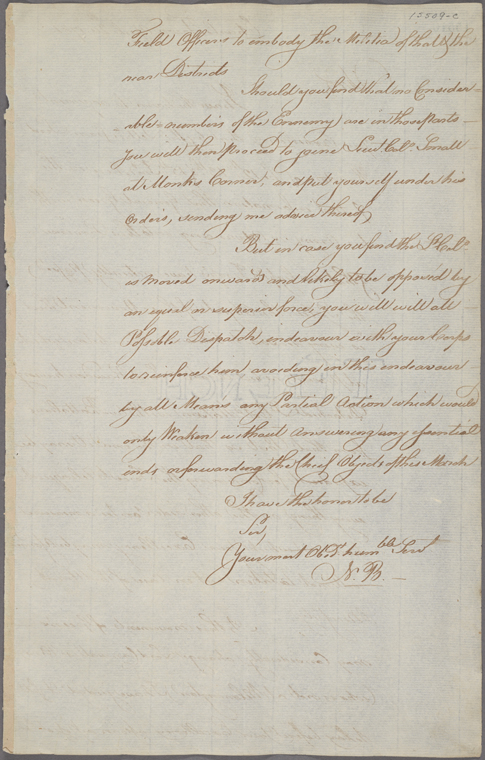 15509-c
Field Officers to embody the Militia of that & the
near Districts
Should you find that no Consider=
able=numbers of the Ennemy are in those parts
you will then proceed to joine Lieut Colo. Small
at Monks Corner, and put yourself under his
Orders, sending me advice thereof
But in case you find the Lt. Colo.
is moved onwards and likely to be opposed by
an equal or superior force, you will will all
Possible Despatch, endeavour with your Corps
to reinforce him avoiding in this endeavour
by all Means any Partial Action which would
only Weaken without answering any essential
end, or forwarding the Chief Objects of these March
I have the honor to be
Sir,
Your most Obdt. humble Servt
N. B.